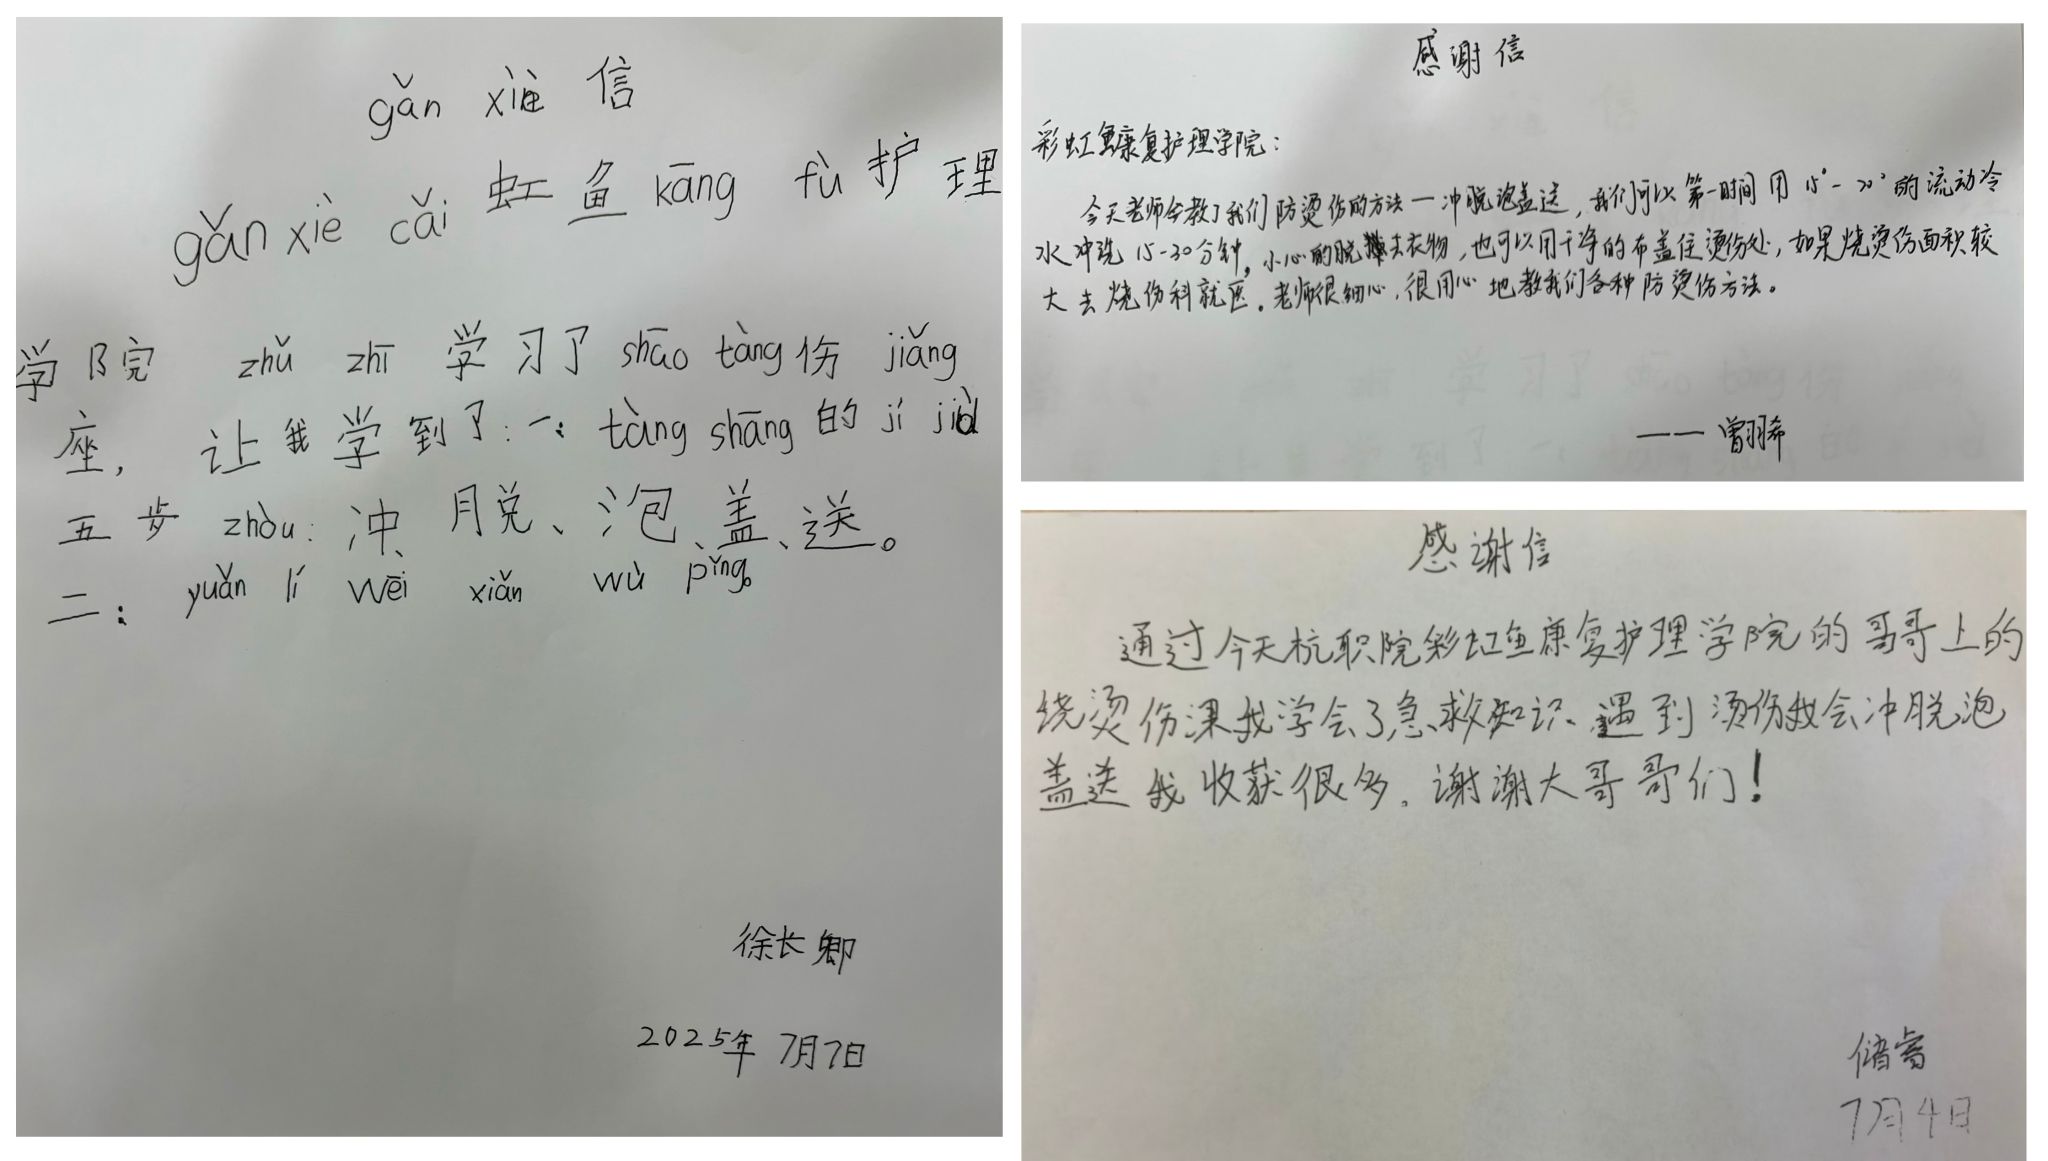 gǎn xiè 信
gǎn xiè cǎi 虹鱼 kāng fù 护理
学院 zhǔ zhī 学习了 shāo tàng 伤 jiǎng
座，让我学到了：一：tàng shāng 的 jí jiù
五步 zhòu：冲、脱、泡、盖、送。
二：yuǎn lí wēi xiǎn wù pǐng。
徐长卿
2025年7月7日
感谢信
彩虹鱼康复护理学院：
今天老师会教了我们防烫伤的方法一冲脱泡盖送，我们可以第一时间用15°-20°的流动冷
水冲洗15-30分钟，小心的脱去衣物，也可以用干净的布盖住烫伤处，如果烧烫伤面积较
大去烧伤科就医。老师很细心，很用心地教我们各种防烫伤方法。
——曾羽希
感谢信
通过今天杭职院彩虹鱼康复护理学院的哥哥上的
烧烫伤课我学会了急救知识、遇到烫伤我会冲脱泡
盖送我收获很多。谢谢大哥哥们！
储睿
7月4日